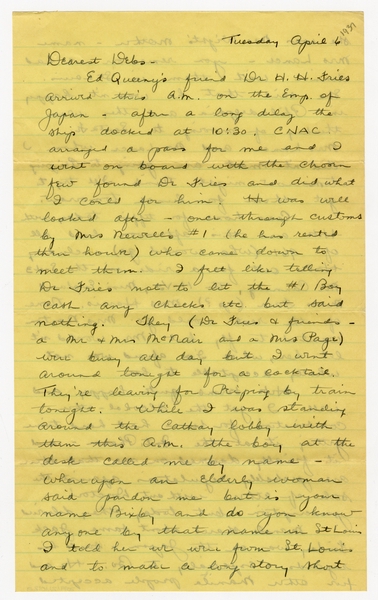 Tuesday April 6 1937
Dearest Debs -
Ed Queeny's friend Dr H. H. Fries
arrived this A.M. on the Emp. of
Japan - after a long delay the
ship docked at 10:30. CNAC
arranged a pass for me and I
went on board with the chosen
few found Dr Fries and did what
I could for him! He was well
looked after - once through customs
by Mrs Newell's #1 - (he has rented
their house) who came down to
meet them. I felt like telling
Dr Fries not to let the #1 Boy
cash any checks etc but said
nothing. They (Dr Fries & friends -
a Mr & Mrs McNair and a Mrs Page)
were busy all day but I went
around tonight for a cocktail.
They're leaving for Peiping by train
tonight. While I was standing
around the Cathay lobby with
them this A.M. the boy at the
desk called me by name -
whereupon an elderly woman
said pardon me but is your
name Bixby and do you know
anyone by that name in St Louis
I told her we were from St. Louis
and to make a long story short